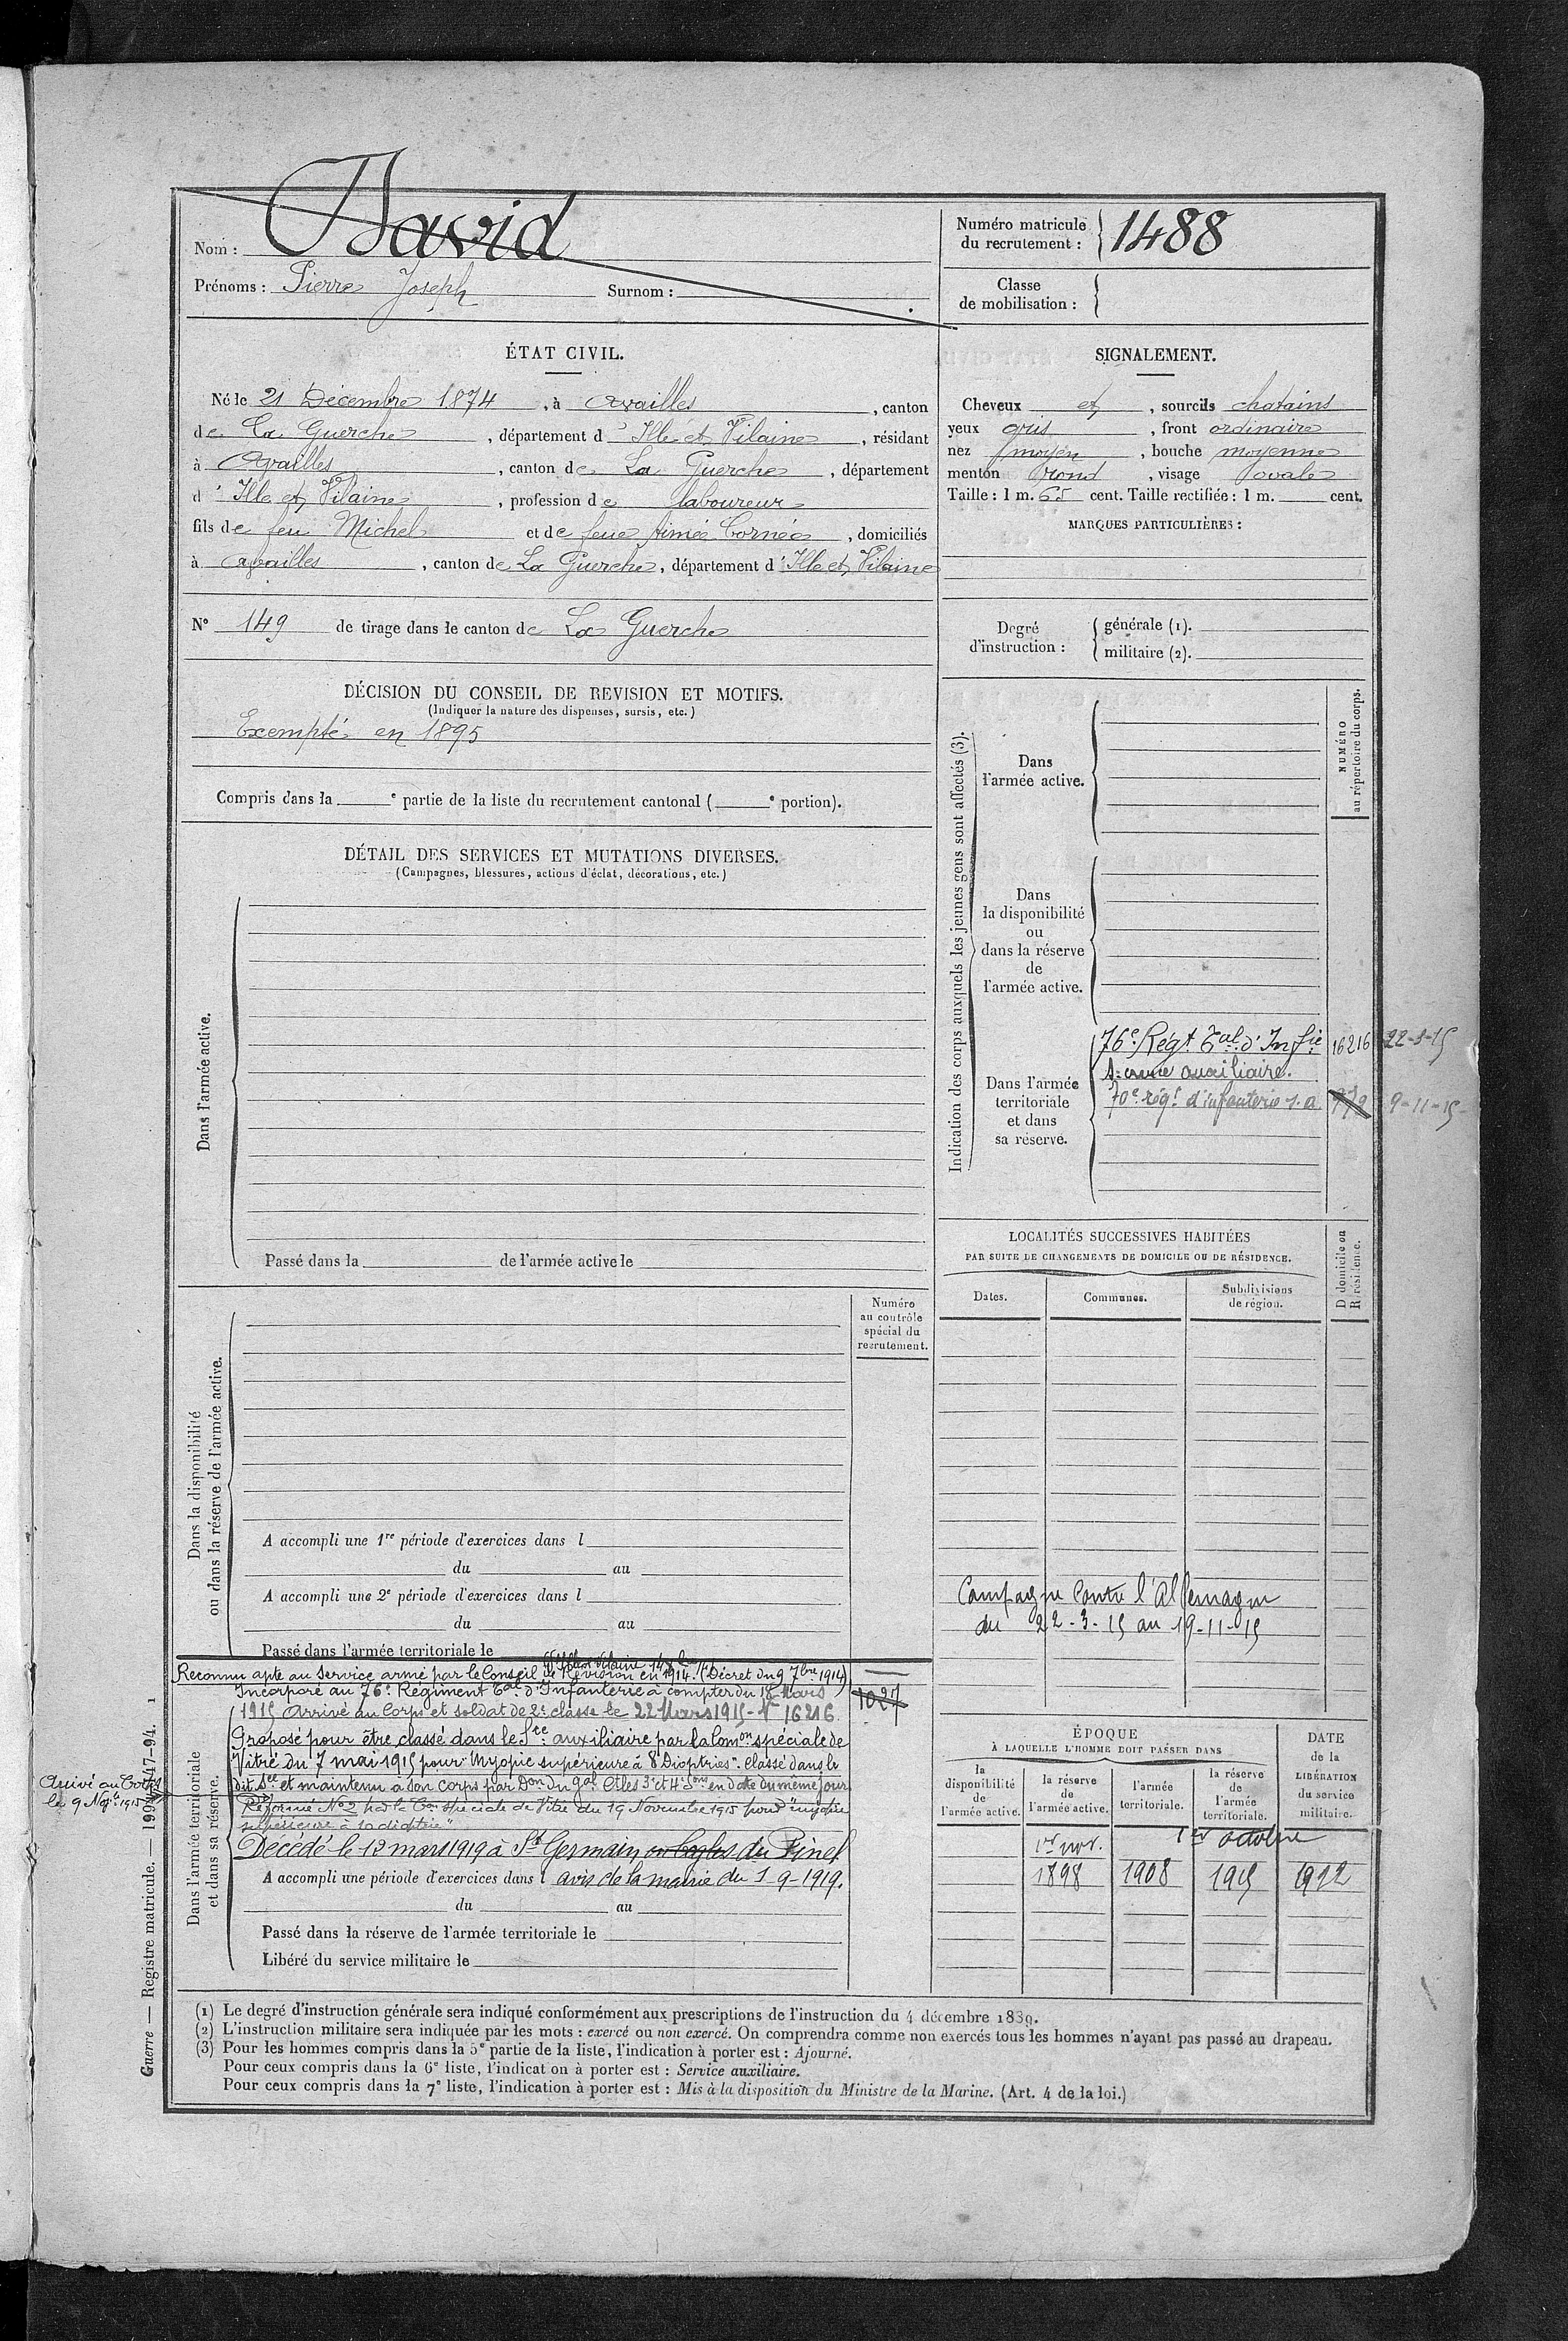 Nom : David
Prénoms : Pierre Joseph Surnom :
Numéro matricule du recrutement : 1488
Classe de mobilisation :
ÉTAT CIVIL.
Né le 21 Décembre 1874, à Availles, canton
de La Guerche, département d'Ille et Vilaine, résidant
à Availles, canton de La Guerche, département
d'Ille et Vilaine, profession de laboureur
fils de feu Michel et de feue Aimée Cornée, domiciliés
à Availles, canton de La Guerche, département d'Ille et Vilaine
N° 149 de tirage dans le canton de La Guerche
SIGNALEMENT.
Cheveux et, sourcils chatains
yeux gris, front ordinaire
nez moyen, bouche moyenne
menton rond, visage ovale
Taille : 1 m. 65 cent. Taille rectifiée : 1 m. cent.
MARQUES PARTICULIÈRES :
Degré d'instruction :
générale (1).
militaire (2).
DÉCISION DU CONSEIL DE REVISION ET MOTIFS.
(Indiquer la nature des dispenses, sursis, etc.)
Exempté en 1895
Compris dans la e partie de la liste du recrutement cantonal ( e portion).
DÉTAIL DES SERVICES ET MUTATIONS DIVERSES.
(Campagnes, blessures, actions d'éclat, décorations, etc.)
Dans l'armée active.
Passé dans la de l'armée active le
Indication des corps auxquels les jeunes gens sont affectés (3).
NUMÉRO au répertoire du corps.
Dans l'armée active.
Dans la disponibilité ou dans la réserve de l'armée active.
Dans l'armée territoriale et dans sa réserve.
76e Régt Tal d'Infie 16216 22-3-15
auxiliaire.
70e régt d'infanterie s.a 9-11-15
LOCALITÉS SUCCESSIVES HABITÉES
PAR SUITE DE CHANGEMENTS DE DOMICILE OU DE RÉSIDENCE.
Dates.
Communes.
Subdivisions de région.
D domicile ou R résidence.
Campagne contre l'Allemagne
du 22-3-15 au 19-11-15
Numéro au contrôle spécial du recrutement.
1027
Dans la disponibilité ou dans la réserve de l'armée active.
A accompli une 1re période d'exercices dans l
du au
A accompli une 2e période d'exercices dans l
du au
Passé dans l'armée territoriale le
Reconnu apte au Service armé par le Conseil de Révision en 1914. (Décret du 9 7bre 1914)
Incorporé au 76e Régiment Tal d'Infanterie à compter du 18 Mars
1915 Arrivé au Corps et soldat de 2e classe le 22 Mars 1915 - No 16216
Proposé pour être classé dans le Sce auxiliaire par la Comon spéciale de
Vitré du 7 mai 1915 pour "Myopie supérieure à 8 Dioptries". Classé dans le
dit Sce et maintenu à son corps par Don du Gal Ct les 3e et 4e Sons en date du même jour
Arrivé au Corps
le 9 Nov. 1915
Réformé No 2 par la Con spéciale de Vitré du 19 Novembre 1915 pour "myopie
supérieure à 10 dioptrie"
Décédé le 12 mars 1919 à St Germain en Cogles du Pinel
A accompli une période d'exercices dans l avis de la mairie du 1-9-1919.
du au
Passé dans la réserve de l'armée territoriale le
Libéré du service militaire le
Dans l'armée territoriale et dans sa réserve.
ÉPOQUE
À LAQUELLE L'HOMME DOIT PASSER DANS
la disponibilité de l'armée active.
la réserve de l'armée active.
l'armée territoriale.
la réserve de l'armée territoriale.
DATE de la LIBÉRATION du service militaire.
1er nov. 1er octobre
1898 1908 1915 1922
(1) Le degré d'instruction générale sera indiqué conformément aux prescriptions de l'instruction du 4 décembre 1889.
(2) L'instruction militaire sera indiquée par les mots : exercé ou non exercé. On comprendra comme non exercés tous les hommes n'ayant pas passé au drapeau.
(3) Pour les hommes compris dans la 5e partie de la liste, l'indication à porter est : Ajourné.
Pour ceux compris dans la 6e liste, l'indication à porter est : Service auxiliaire.
Pour ceux compris dans la 7e liste, l'indication à porter est : Mis à la disposition du Ministre de la Marine. (Art. 4 de la loi.)
Guerre — Registre matricule. —